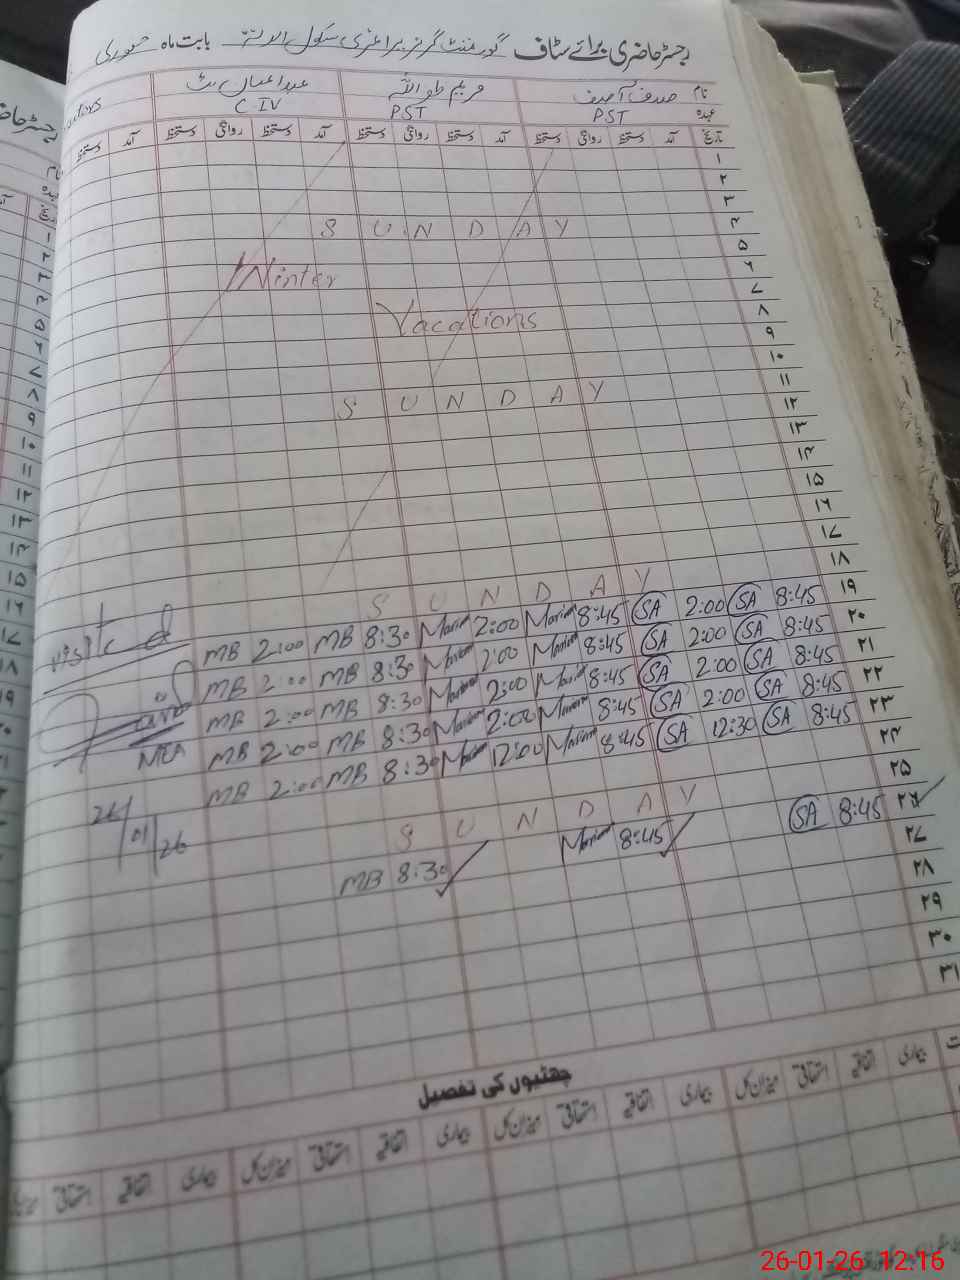 رجسٹر حاضری برائے سٹاف گورنمنٹ گرلز پرائمری سکول بابت ماہ جنوری
نام صدف آصف مریم
عہدہ PST PST C-IV
تاریخ آمد دستخط روانگی دستخط آمد دستخط روانگی دستخط آمد دستخط روانگی دستخط آمد دستخط
۱
۲
۳
۴ S U N D A Y
۵
۶
۷ Winter
۸ Vacations
۹
۱۰
۱۱ S U N D A Y
۱۲
۱۳
۱۴
۱۵
۱۶
۱۷
۱۸ S U N D A Y
۱۹ MB 2:00 MB 8:30 Mariam 2:00 Mariam 8:45 SA 2:00 SA 8:45
visited
۲۰ MB 2:00 MB 8:30 Mariam 2:00 Mariam 8:45 SA 2:00 SA 8:45
۲۱ MB 2:00 MB 8:30 Mariam 2:00 Mariam 8:45 SA 2:00 SA 8:45
۲۲ MB 2:00 MB 8:30 Mariam 2:00 Mariam 8:45 SA 2:00 SA 8:45
۲۳ MB 2:00 MB 8:30 Mariam 12:00 Mariam 8:45 SA 12:30 SA 8:45
MEA
26/01/26
۲۴
۲۵ S U N D A Y
۲۶ MB 8:30 Mariam 8:45 SA 8:45
۲۷
۲۸
۲۹
۳۰
۳۱
چھٹیوں کی تفصیل
بیماری اتفاقیہ استحقاقی میزان کل بیماری اتفاقیہ استحقاقی میزان کل بیماری اتفاقیہ استحقاقی میزان کل بیماری اتفاقیہ استحقاقی
26-01-26 12:16